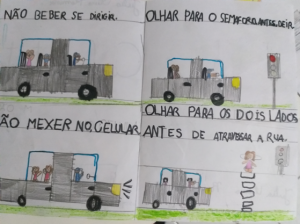 NÃO BEBER SE DIRIGIR.
OLHAR PARA O SEMAFORO ANTES DE IR.
ÃO MEXER NO CELULAR
OLHAR PARA OS DOIS LADOS
ANTES DE ATRAVESSAR A RUA.